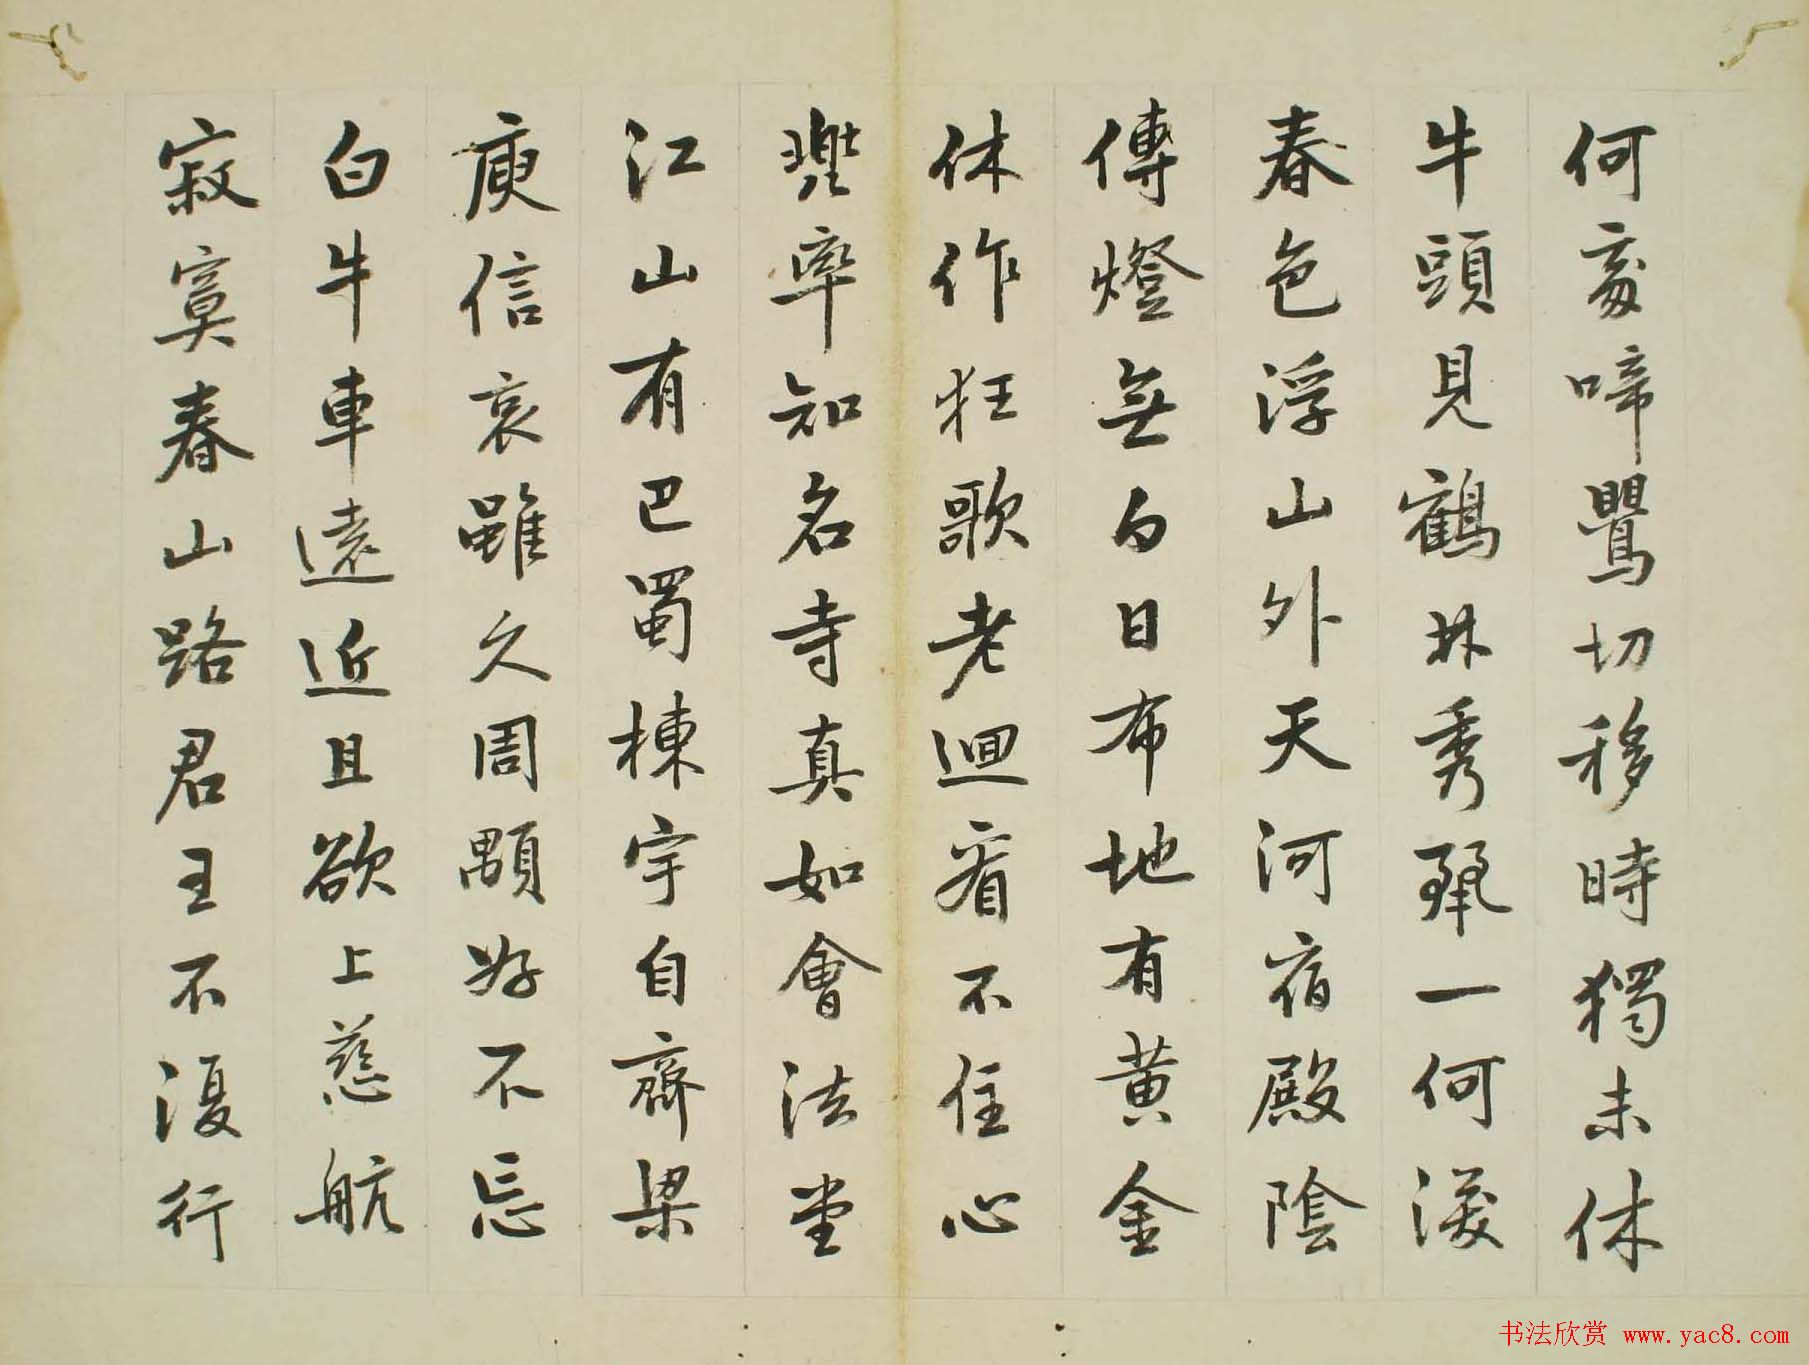 何處啼鸎切移時獨未休
牛頭見鶴林秀麗一何深
春色浮山外天河宿殿陰
傳燈無白日布地有黃金
休作狂歌老迴看不住心
兜率知名寺真如會法堂
江山有巴蜀棟宇自齊梁
庾信哀雖久周顒好不忘
白牛車遠近且欲上慈航
寂寞春山路君王不復行
书法欣赏 www.yac8.com